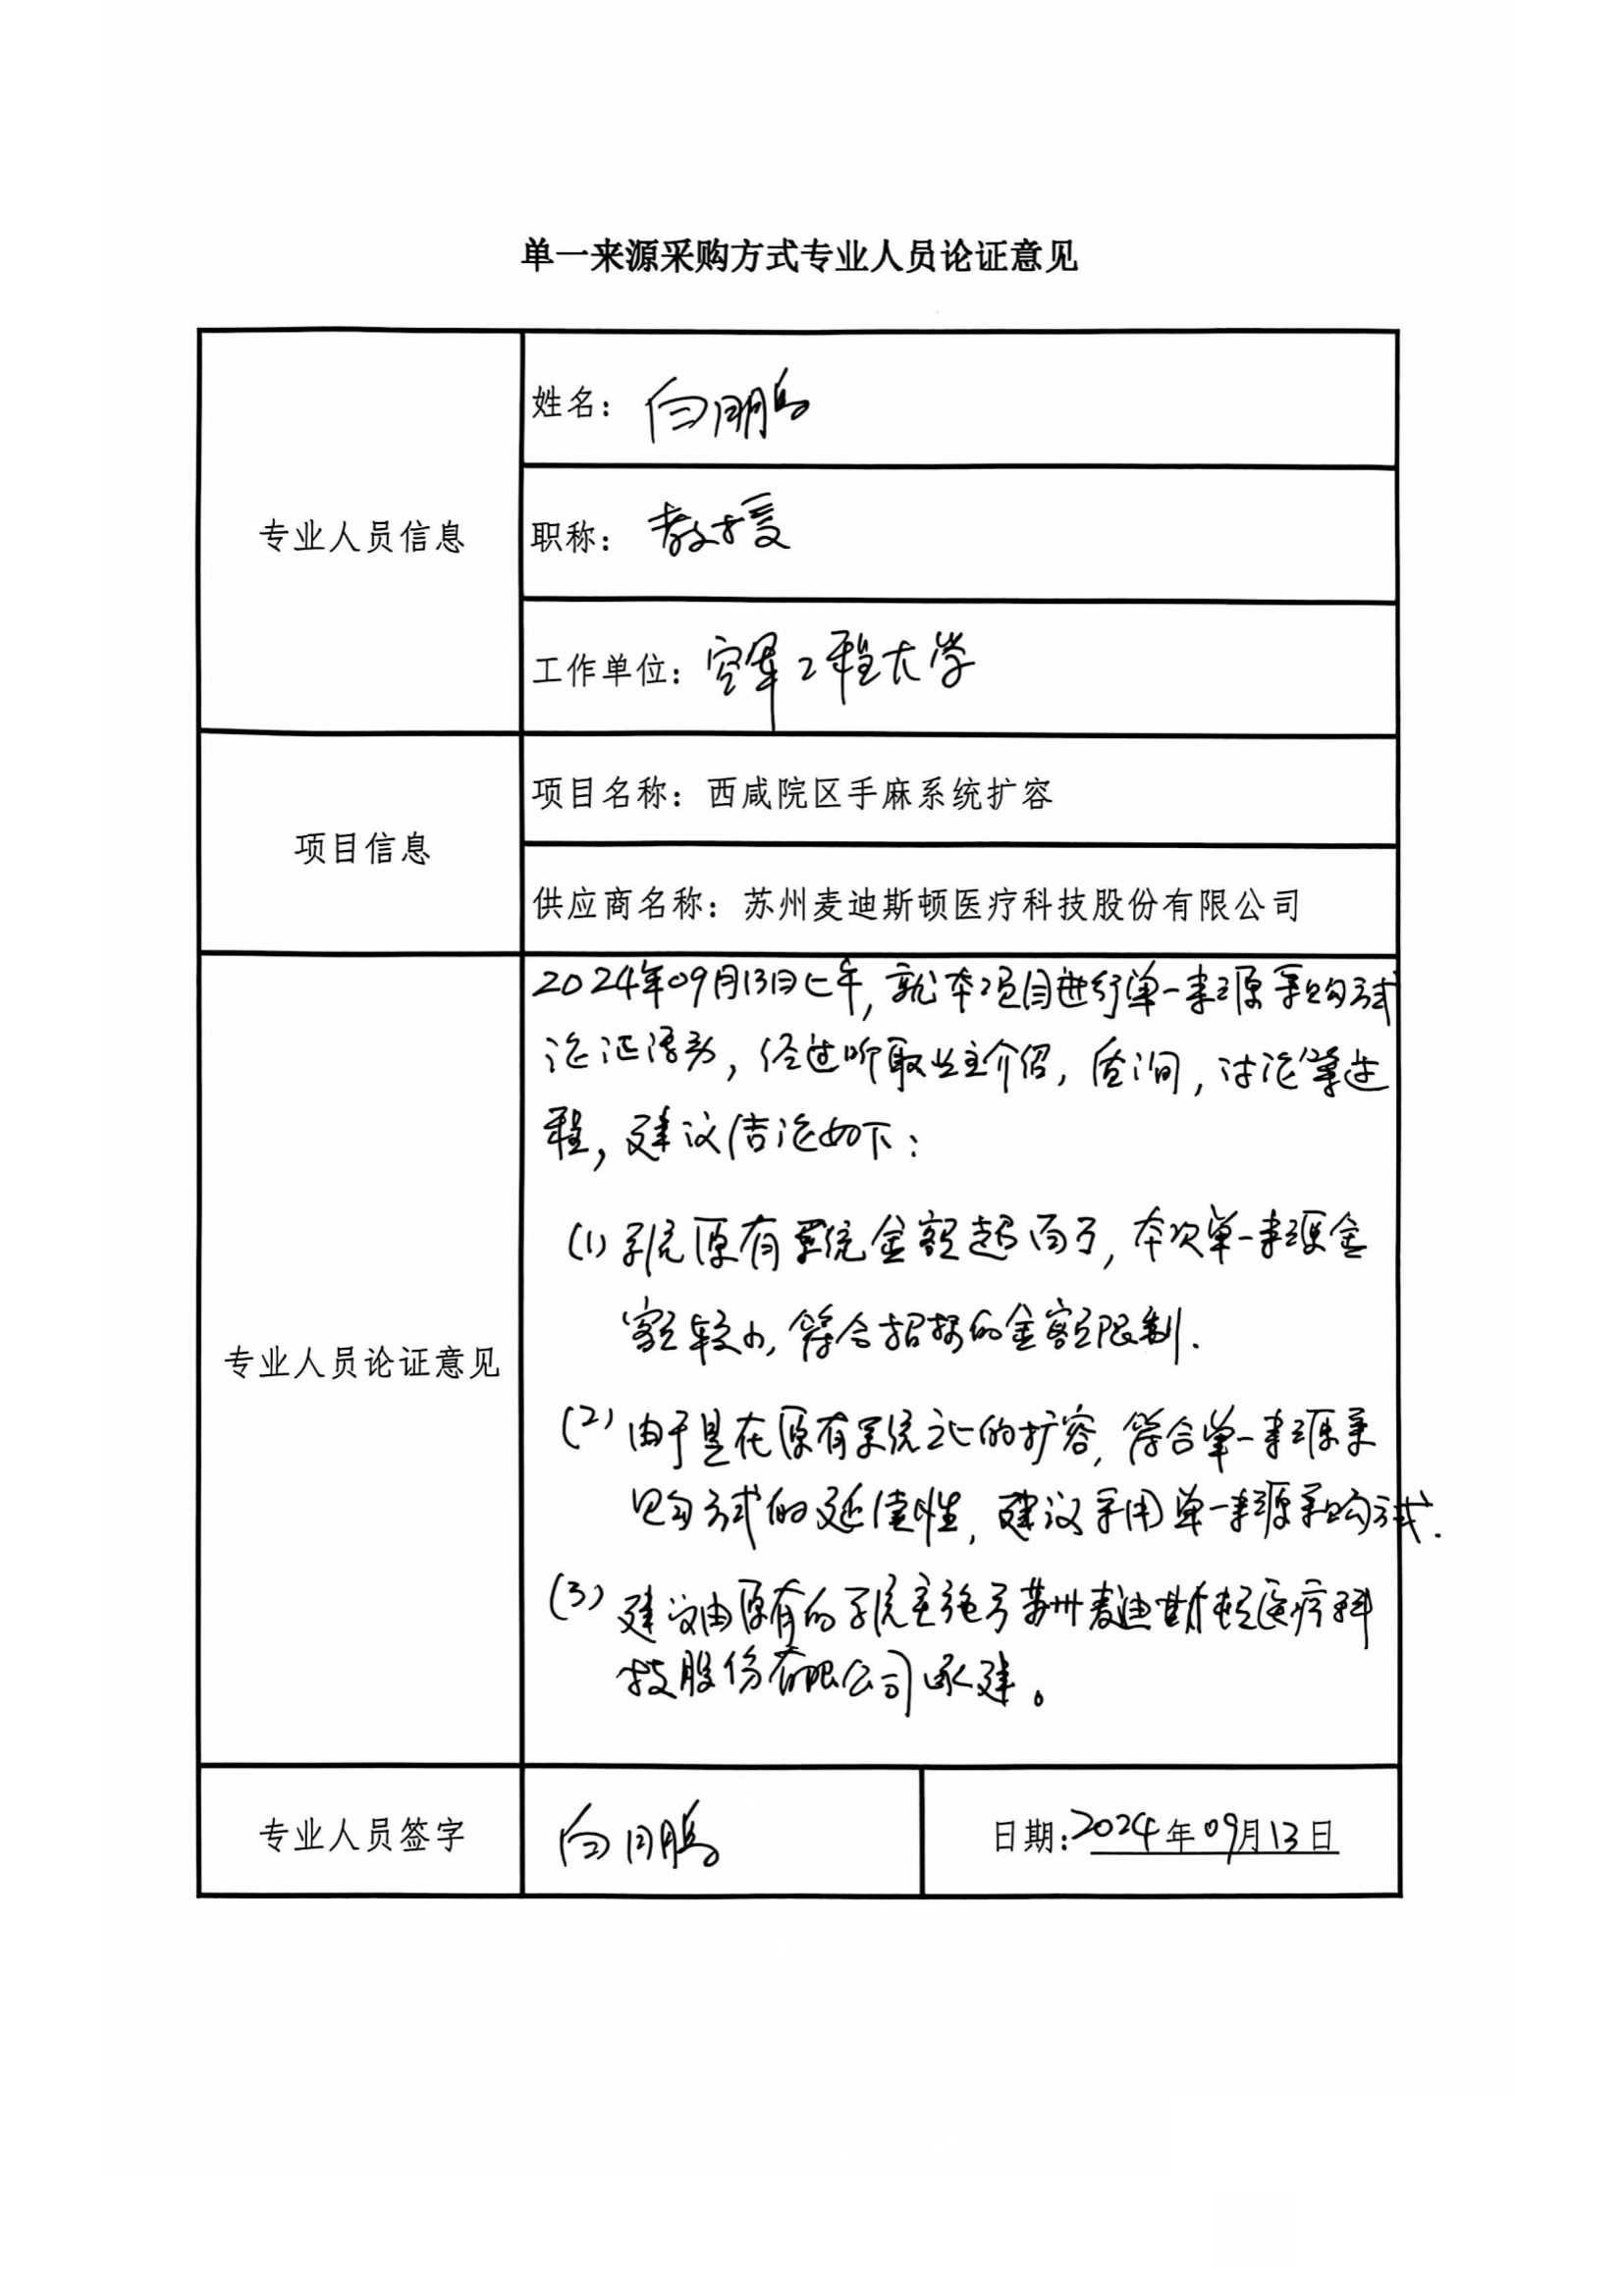 单一来源采购方式专业人员论证意见
专业人员信息
姓名：白鹏
职称：教授
工作单位：空军工程大学
项目信息
项目名称：西咸院区手麻系统扩容
供应商名称：苏州麦迪斯顿医疗科技股份有限公司
专业人员论证意见
2024年09月13日上午，就本项目进行单一来源采购方式
论证活动，经过听取业主介绍，质询，讨论等过
程，建议结论如下：
(1) 系统原有系统金额超百万，本次单一来源金
额较小，符合招标的金额限制.
(2) 由于是在原有系统之上的扩容，符合单一来源采
购方式的延续性，建议采用单一来源采购方式.
(3) 建议由原有的系统实施方苏州麦迪斯顿医疗科
技股份有限公司承建。
专业人员签字
白鹏
日期：2024年09月13日